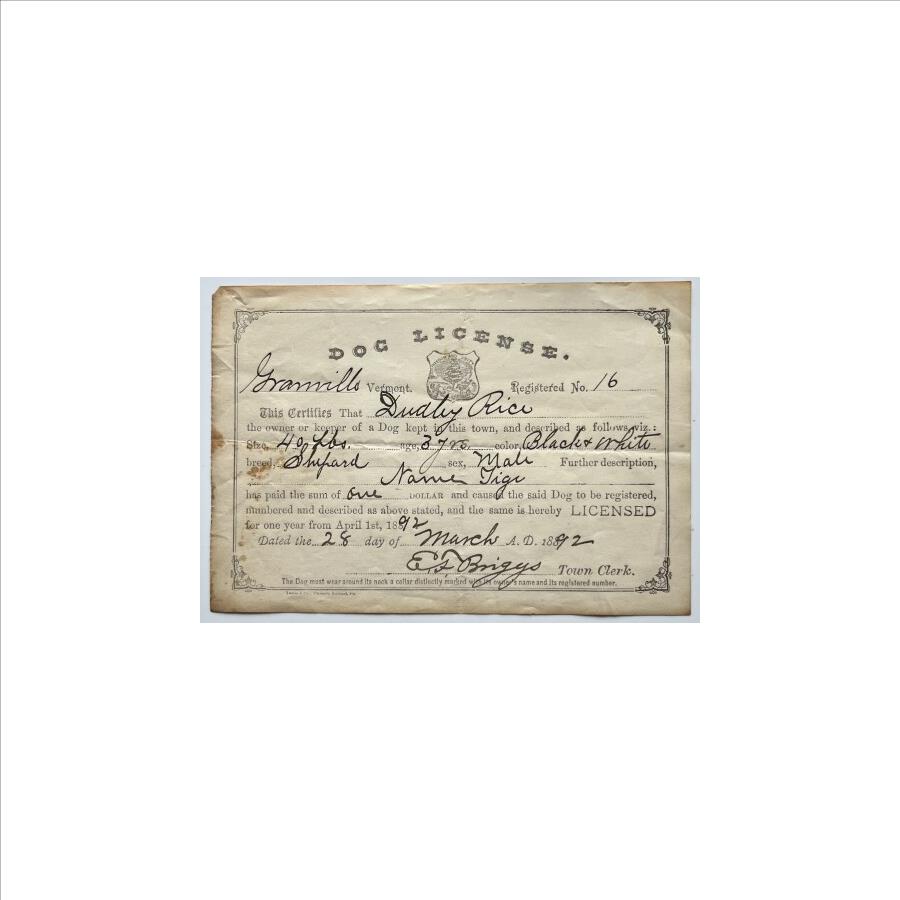 DOG LICENSE.
Granville Vermont. Registered No. 16
This Certifies That Dudley Rice
the owner or keeper of a Dog kept in this town, and described as follows, viz.:
Size, 40 Lbs. age, 3 yrs. color, Black & White
breed, Shepard sex, Male Further description,
Name Tige
has paid the sum of one DOLLAR and caused the said Dog to be registered,
numbered and described as above stated, and the same is hereby LICENSED
for one year from April 1st, 1892
Dated the 28 day of March A. D. 1892
Briggs Town Clerk.
The Dog must wear around its neck a collar distinctly marked with its owner's name and its registered number.